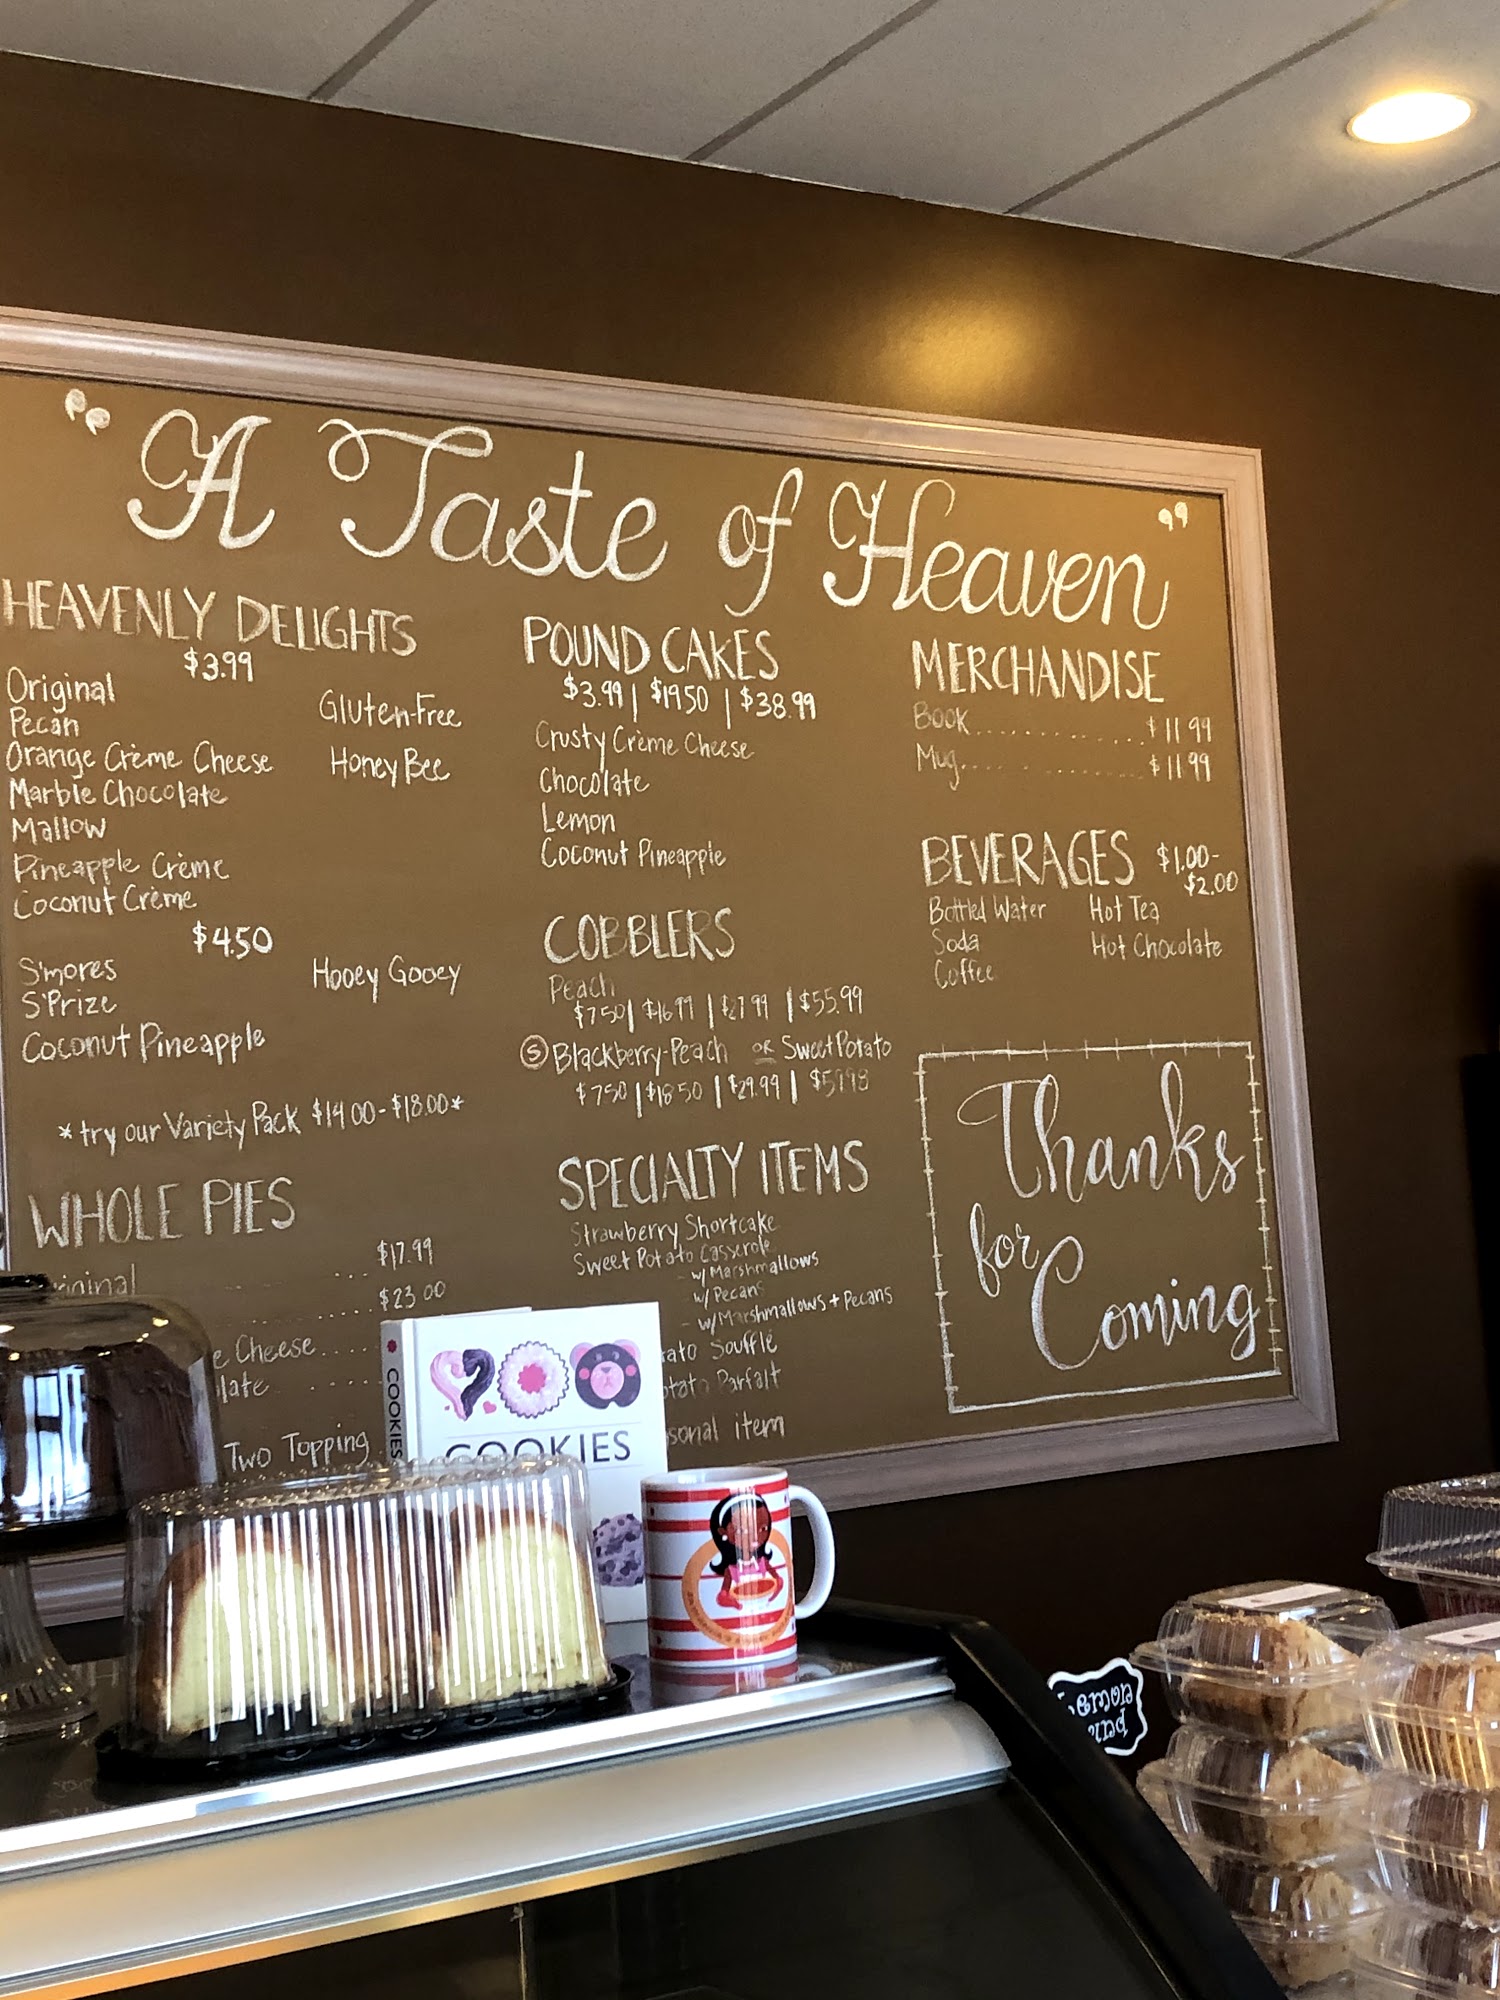 "A Taste of Heaven"
HEAVENLY DELIGHTS
$3.99
Original
Pecan
Orange Crème Cheese
Marble Chocolate
Mallow
Pineapple Crème
Coconut Crème
Gluten-Free
Honey Bee
$4.50
S'mores
S'Prize
Coconut Pineapple
Hooey Gooey
*try our Variety Pack $14.00-$18.00*
WHOLE PIES
$17.99
$23.00
Cheese....
Two Topping
POUND CAKES
$3.99 | $19.50 | $38.99
Crusty Crème Cheese
Chocolate
Lemon
Coconut Pineapple
COBBLERS
Peach
$7.50 | $16.99 | $27.99 | $55.99
Ⓢ Blackberry-Peach OR Sweet Potato
$7.50 | $18.50 | $29.99 | $59.98
SPECIALTY ITEMS
Strawberry Shortcake
Sweet Potato Casserole
- w/Marshmallows
w/Pecans
- w/Marshmallows + Pecans
Soufflé
Parfait
item
MERCHANDISE
Book.............$11.99
Mug.............$11.99
BEVERAGES $1.00-
$2.00
Bottled Water
Soda
Coffee
Hot Tea
Hot Chocolate
Thanks
for
Coming
COOKIES
COOKIES